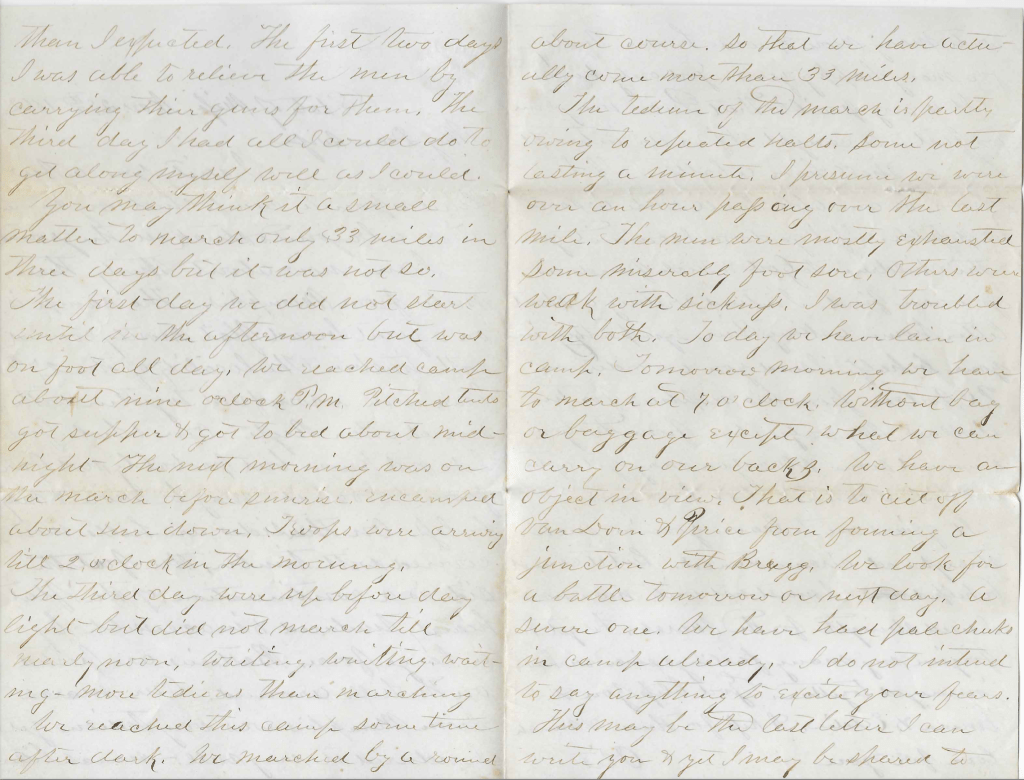 than I expected. The first two days
I was able to relieve the men by
carrying their guns for them. The
third day I had all I could do to
get along myself well as I could.
You may think it a small
matter to march only 33 miles in
three days but it was not so.
The first day we did not star
until in the afternoon but was
on foot all day. We reached camp
about nine oclock P.M. Pitched tents
got supper & got to bed about mid-
night The next morning was on
the march before sunrise. encamped
about sun down. Troops were arriving
till 2 oclock in the morning.
The third day were up before day
light but did not march till
nearly noon, waiting, waiting, wait-
ing- more tedious than marching
We reached this camp some time
after dark. We marched by a round
about course. so that we have actu-
ally come more than 33 miles.
The tedium of the march is partly
owing to repeated halts. Some not
lasting a minute. I presume we were
over an hour passing over the last
mile. The men were mostly exhausted
some miserably foot sore, others were
weak with sickness. I was troubled
with both. To day we have lain in
camp. Tomorrow morning we have
to march at 7 o'clock. Without bag
or baggage except what we can
carry on our backs. We have an
object in view. That is to cut off
Van Dorn & Price from forming a
junction with Bragg. We look for
a battle tomorrow or next day. A
severe one. We have had pale cheeks
in camp already. I do not intend
to say anything to excite your fears.
This may be the last letter I can
write you & yet I may be spared to